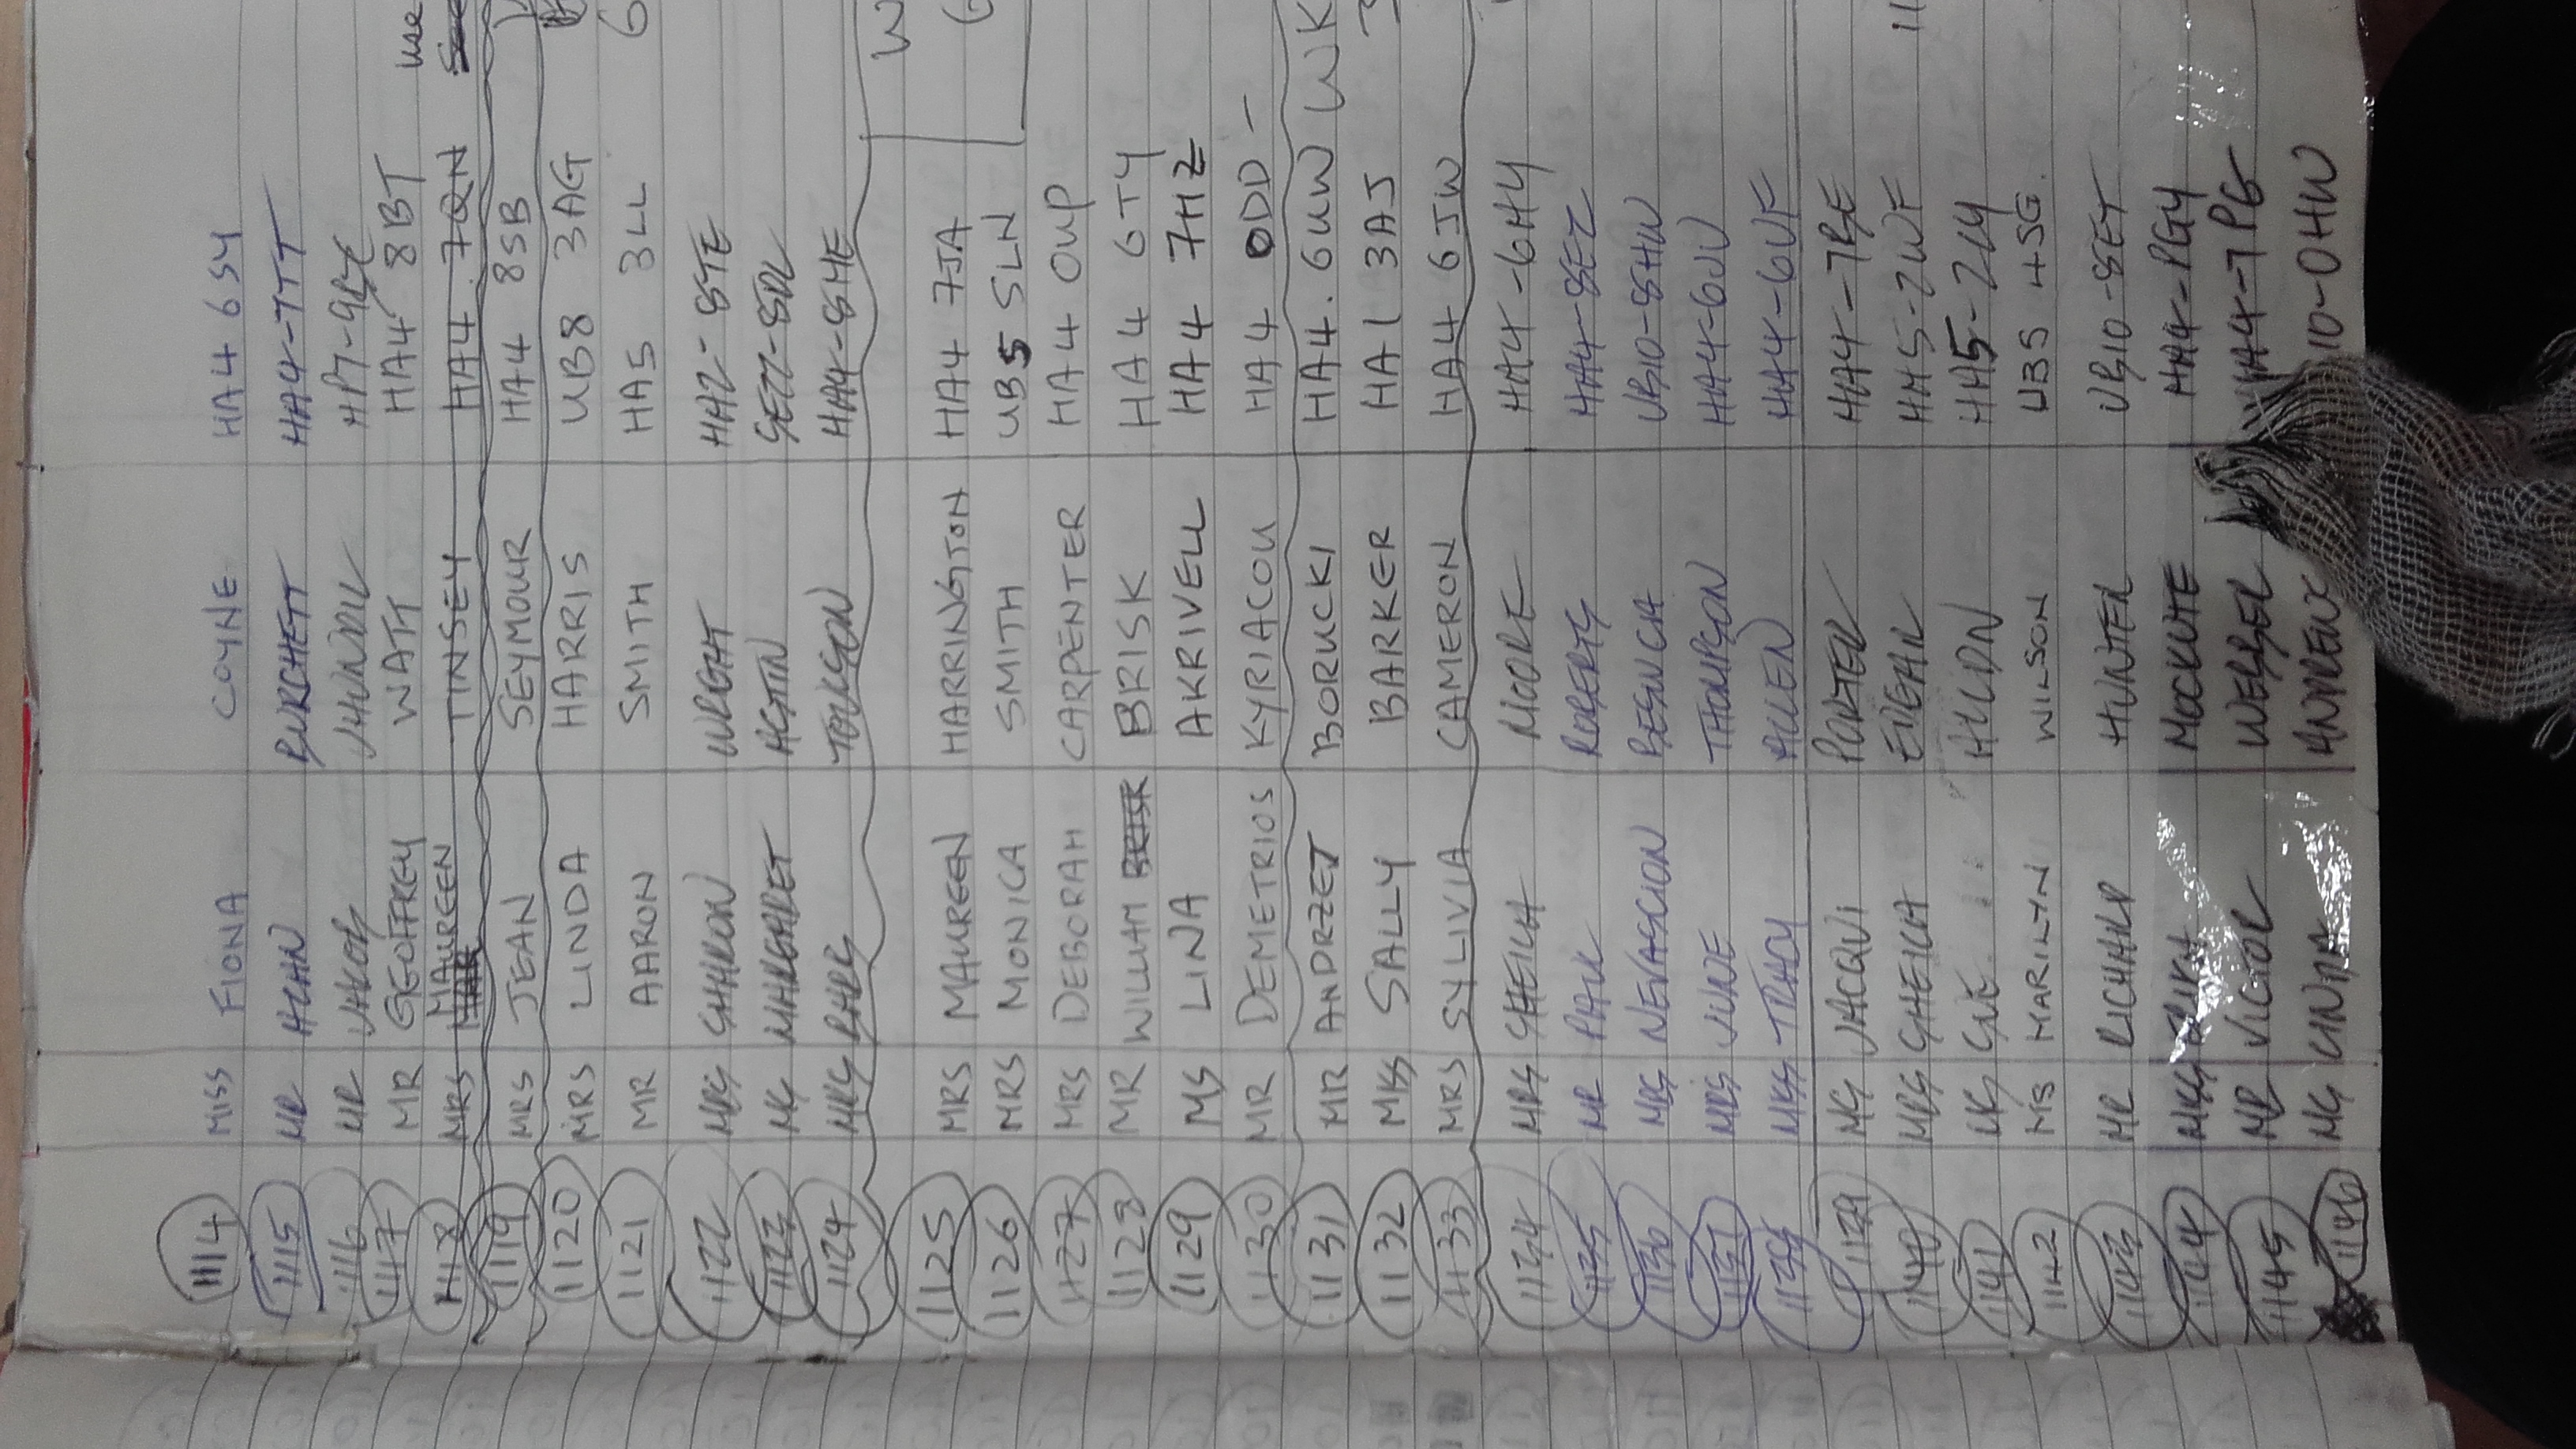 1114 MISS FIONA COYNE HA4 6SY
1115 MR ALAN BURCHETT HA4-7TT
1116 MR JAKOB
1117 MR GEOFFREY WATT HA4 8BT use
1118 MRS MAUREEN TINSEY HA4.7QN
1119 MRS JEAN SEYMOUR HA4 8SB
1120 MRS LINDA HARRIS UB8 3AG
1121 MR AARON SMITH HA5 3LL
1122 MRS SHARON WRGHT HA2-8TE
1123 MS MARGARET ASTIN SE22-8DL
1124 MRS HA4-8HE
1125 MRS MAUREEN HARRINGTON HA4 7JA
1126 MRS MONICA SMITH UB5 5LN
1127 MRS DEBORAH CARPENTER HA4 0UP
1128 MR WILLIAM BRISK BRISK HA4 6TY
1129 MS LINA AKRIVELL HA4 7HZ
1130 MR DEMETRIOS KYRIACOU HA4 0DD -
1131 MR ANDRZEJ BORUCKI HA4. 6UW WK
1132 MISS SALLY BARKER HA1 3AJ
1133 MRS SYLIVIA CAMERON HA4 6JW
1134 MRS SHEILA MOORE HA4-6HY
1135 MR PAUL ROBERTS HA4-8EZ
1136 MRS UB10-8HW
1137 MRS JUNE THOMPSON HA4-6JU
1138 MISS TRACY ALLEN HA4-6UF
1139 MS JACQUI PORTER HA4-7BE
1140 MRS SHEILA EDGAR HA5-2WF 11
1141 MS SUE HA5-2LY
1142 MS MARILYN WILSON UB5 4SG.
1143 MR RICHARD HUNTER UB10-8ET
1144 MISS ERIKA MOCKUTE HA4-PGY
1145 MR VICTOR WEBBER HA4-7PG
1146 MS LINDA ANDREWS 10-0HW